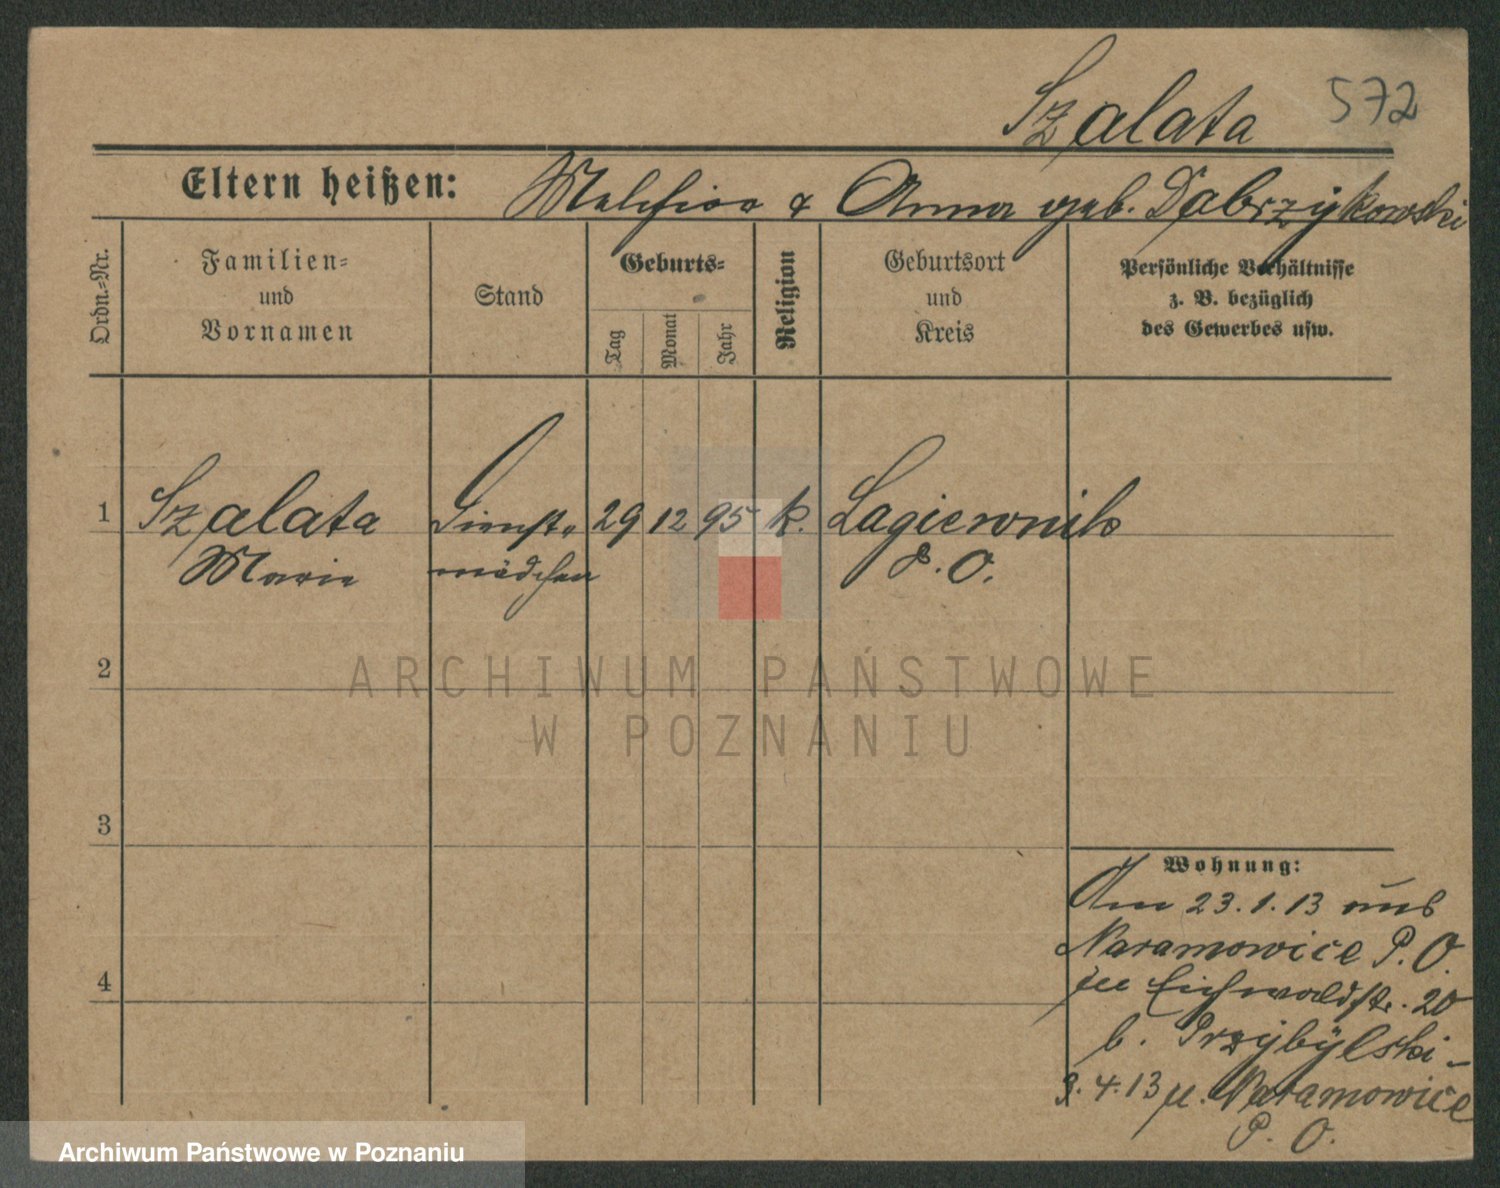 Szalata 572
Eltern heißen: Melchior & Anna geb. Dabrzykowski
Ordn.-Nr.
Familien-
und
Vornamen
Stand
Geburts-
Tag
Monat
Jahr
Religion
Geburtsort
und
Kreis
Persönliche Verhältnisse
z. B. bezüglich
des Gewerbes usw.
1 Szalata Dienst- 29 12 95 k. Lagiewnik
Marie mädchen P. O.
2
ARCHIWUM PAŃSTWOWE
W POZNANIU
3
4
Wohnung:
Am 23.1.13 aus
Naramowice P. O.
Eichwaldstr. 20
b. Przybylski -
3.4.13 n. Naramowice
P. O.
Archiwum Państwowe w Poznaniu